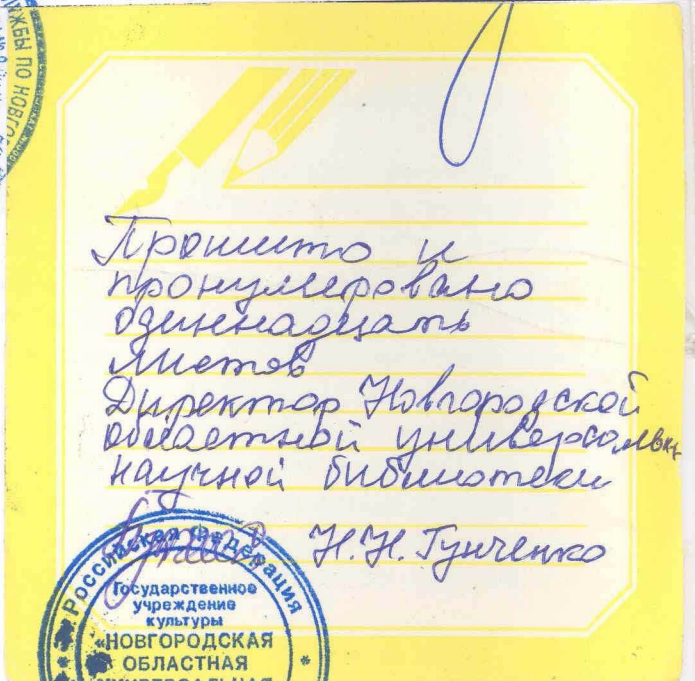 УЖБЫ ПО НОВГО
Прошито и
пронумеровано
одиннадцать
листов
Директор Новгородской
областной универсальн
научной библиотеки
Н.Н. Гунченко
Российская Федерация
Государственное
учреждение
культуры
«НОВГОРОДСКАЯ
ОБЛАСТНАЯ
УНИВЕРСАЛЬНАЯ